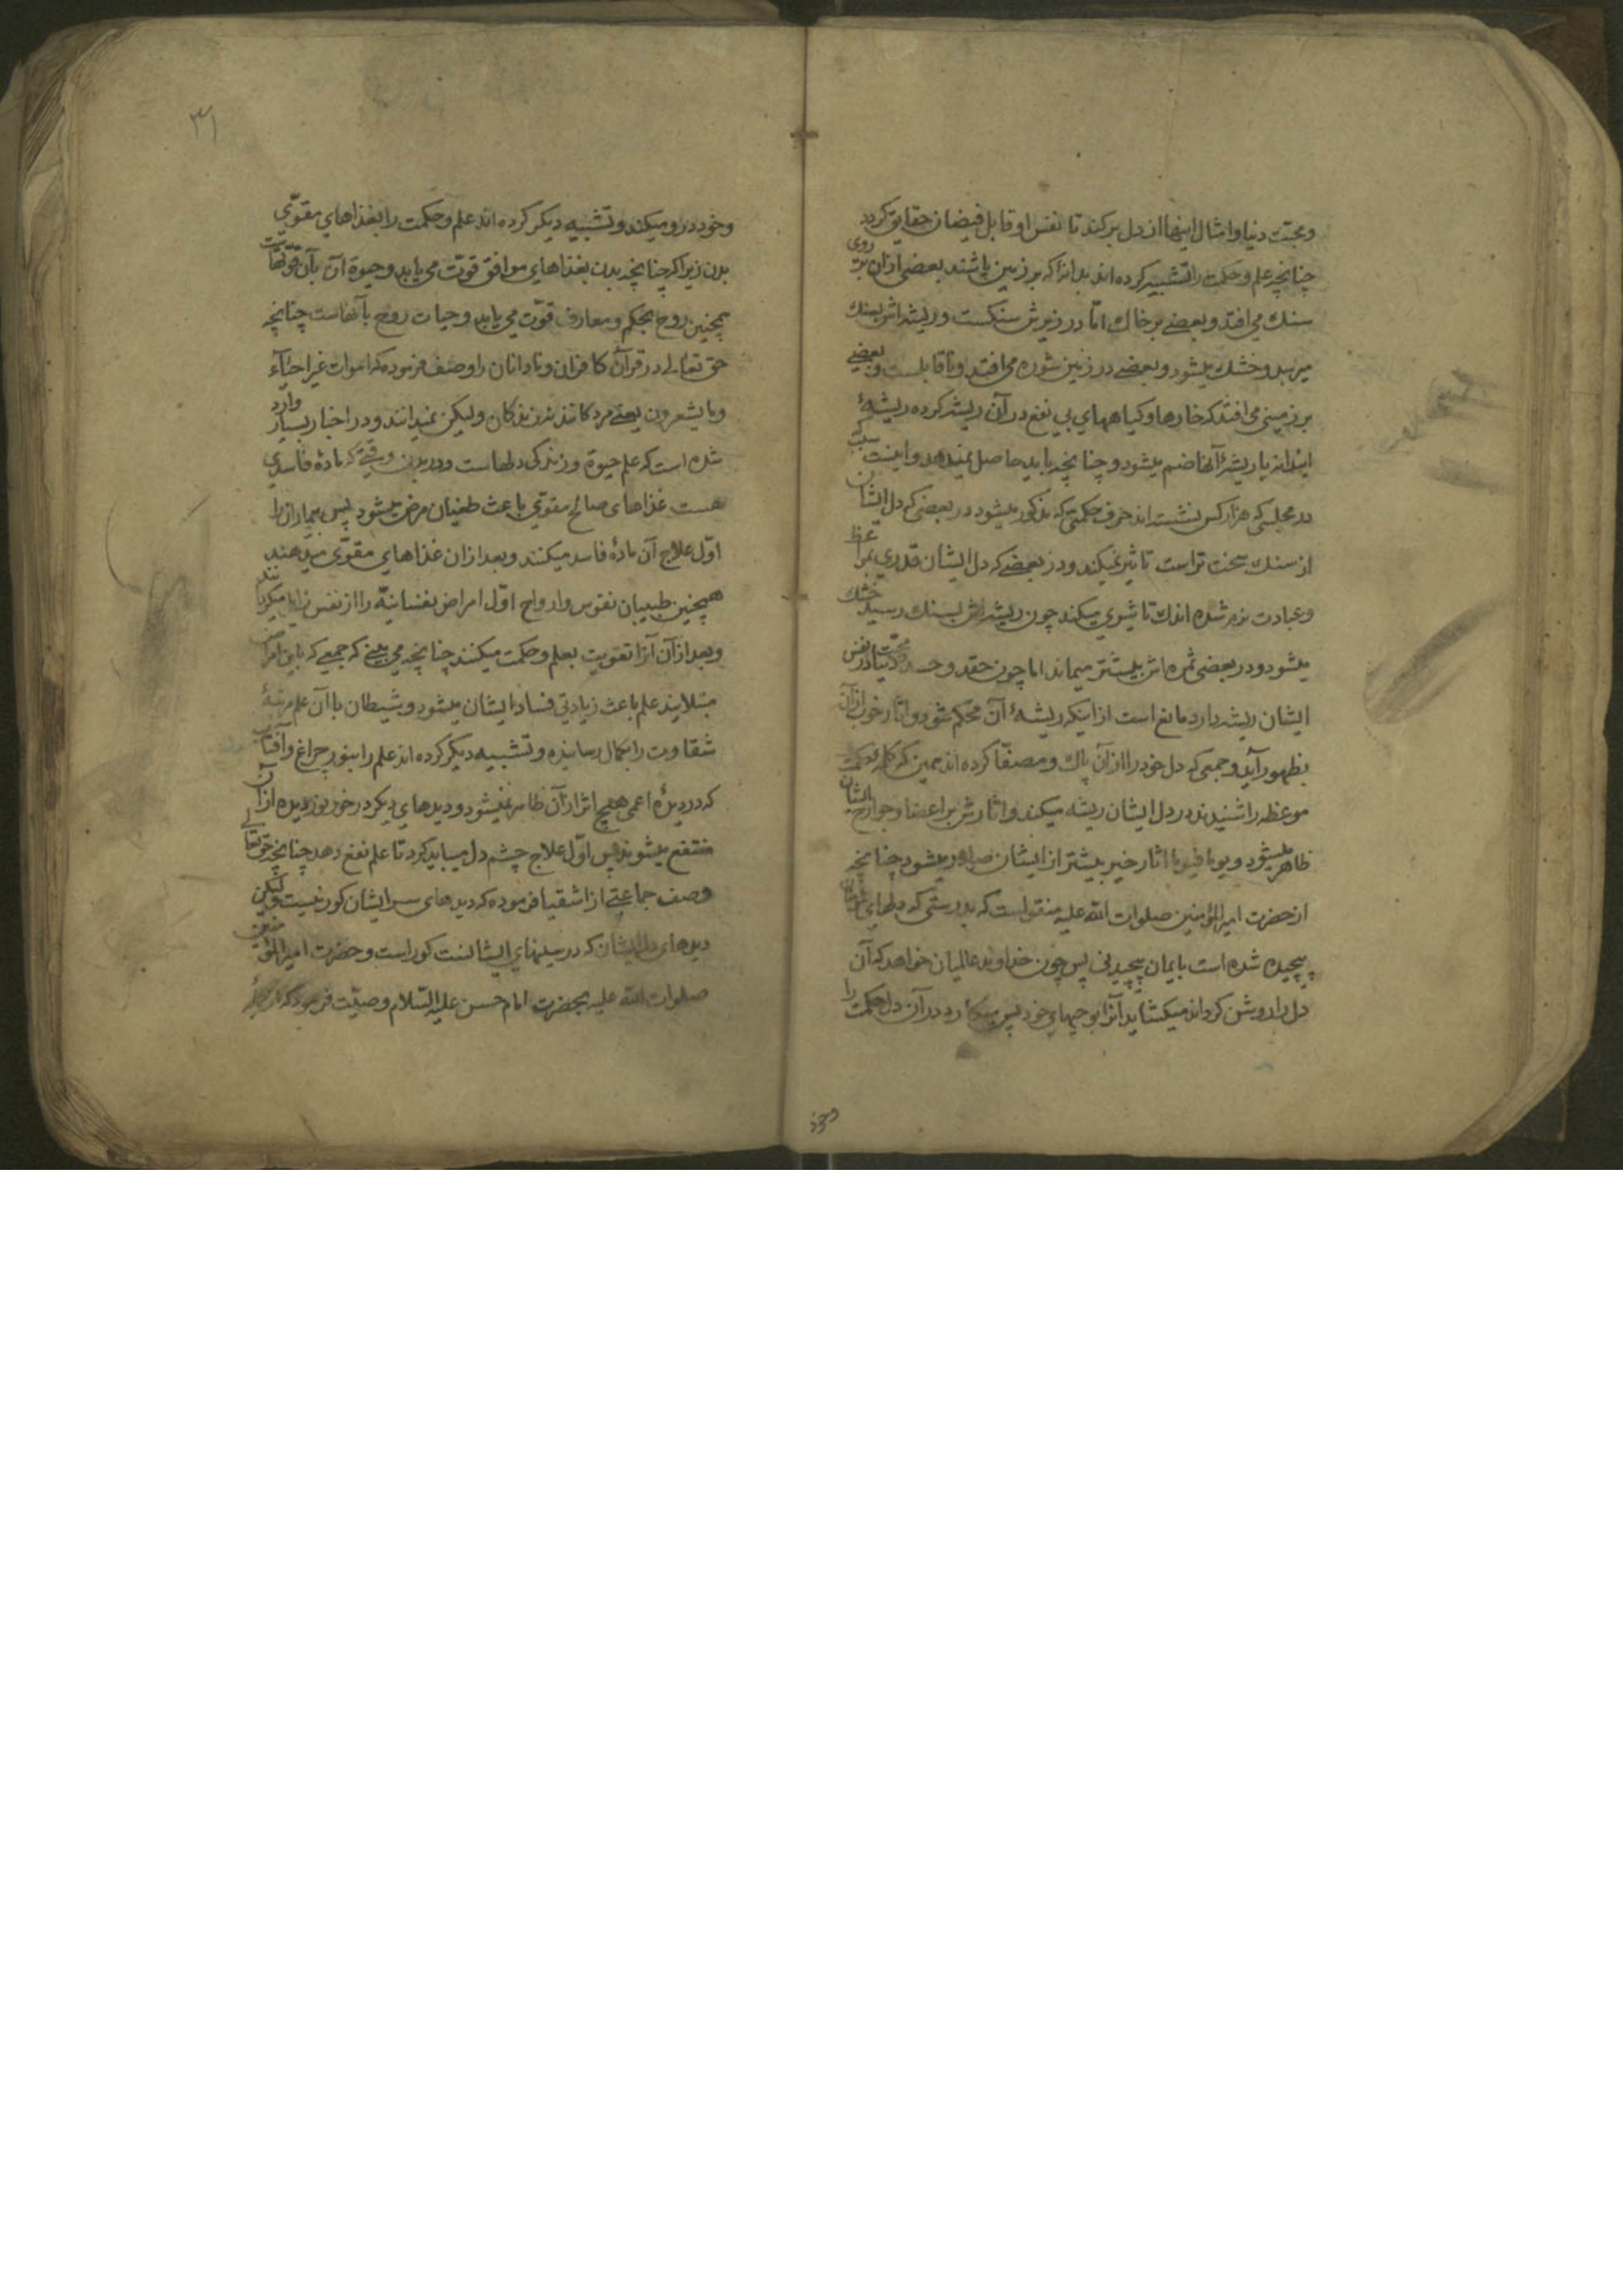 ومحبت دنیا وامثال اینها از دل برکند تا نفس او قابل فیضان حقایق کردد
چنانچه علم وحکمت را تشبیه کرده اند بدانهٔ که بر زمین پاشند بعضی از ان بر روی
سنك می افتد وبعضے بر خاك امّا در زیرش سنکست وریشه اش بسنك
میرسد وخشك میشود وبعضے در زمین شوره می افتد وناقابلست وبعضے
بر زمینی می افتد که خارها وکیاههای بی نفع در آن ریشه کرده ریشهٔ
این دانه با ریشهٔ آنها ضم میشود وچنانچه باید حاصل نمیدهد واینست سبب
در مجلسی که هزار کس نشسته اند حرف حکمتی که مذکور میشود در بعضی که دل ایشان
از سنك سخت تر است تاثیر نمیکند ودر بعضے که دل ایشان قدری بمواعظ
وعبادت نرم شده اندك تاثیری میکند چون ریشه اش بسنك رسید خشك
میشود ودر بعضی ثمره اش بیشتر میماند اما چون حقد وحسد ومحبّت دنیا در نفس
ایشان ریشه دارد مانع است از اینکه ریشهٔ آن محکم شود واثار خوب از آن
بظهور آید وجمعی که دل خود را از آن پاك ومصفّا کرده اند همین که کلمهٔ حکمت
موعظه را شنیدند در دل ایشان ریشه میکند واثارش بر اعضا وجوارح ایشان
ظاهر میشود ویوما فیوما اثار خیر بیشتر از ایشان صادر میشود چنانچه
از حضرت امیر المؤمنین صلوات الله علیه منقولست که بدرستی که دلهای مؤمنان
پیچیده شده است بایمان پیچیدنی پس چون خداوند عالمیان خواهد که آن
دل را روشن کرداند میکشاید آنرا بوحیهای خود پس میکارد در آن دل حکمت را
وخود
٣١
وخود درو میکند وتشبیه دیکر کرده اند علم وحکمت را بغذاهای مقوّی
بدن زیرا که چنانچه بدن بغذاهای موافق قوّت می یابد وحیوة آن بآن قوتهاست
همچنین روح بحکم ومعارف قوّت می یابد وحیات روح بآنهاست چنانچه
حق تعالے در قرآن کافران ونادانان را وصف فرموده که اموات غیر احیآء
وما یشعرون یعنے مردکانند نه زندکان ولیکن نمیدانند ودر اخبار بسیار وارد
شده است که علم حیوة وزندکی دلهاست ودر بدن وقتے که مادهٔ فاسدی
هست غذاهای صالح مقوّی باعث طغیان مرض میشود پس بیماران را
اوّل علاج آن مادهٔ فاسد میکنند وبعد از ان غذاهای مقوّی میدهند
همچنین طبیبان نفوس وارواح اوّل امراض نفسانیّه را از نفس زایل میکردانند
وبعد از آن آنرا تقویت بعلم وحکمت میکنند چنانچه می بینے که جمعے که باین امراض
مبتلایند علم باعث زیادتی فساد ایشان میشود وشیطان باآن علم مرتبهٔ
شقاوت را بکمال رسانیده وتشبیه دیکر کرده اند علم را بنور چراغ وآفتاب
که در دیدهٔ اعمی هیچ اثر از آن ظاهر نمیشود ودیدهای دیکر در خور نور دیده از آن
منتفع میشوند پس اوّل علاج چشم دل میباید کرد تا علم نفع دهد چنانچه حق تعالے
وصف جماعتے از اشقیا فرموده که دیدهای سر ایشان کور نیست ولیکن
دیدهای دل ایشان که در سینهای ایشانست کور است وحضرت امیر المؤمنین
صلوات الله علیه بحضرت امام حسن علیه السّلام وصیّت فرمود که از جملهٔ